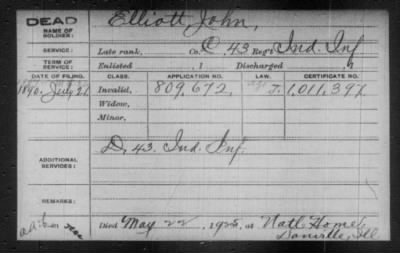 DEAD
NAME OF SOLDIER: Elliott John,
SERVICE: Late rank, Co. C, 43 Reg't Ind. Inf
TERM OF SERVICE: Enlisted , 1 Discharged , 1
DATE OF FILING. CLASS. APPLICATION NO. LAW. CERTIFICATE NO.
1890, July 21 Invalid, 809,672, J. 1,011,397
Widow,
Minor,
ADDITIONAL SERVICES: D, 43. Ind. Inf.
REMARKS:
Died May 22, 1925, at Natl Home,
Danville, Ill.